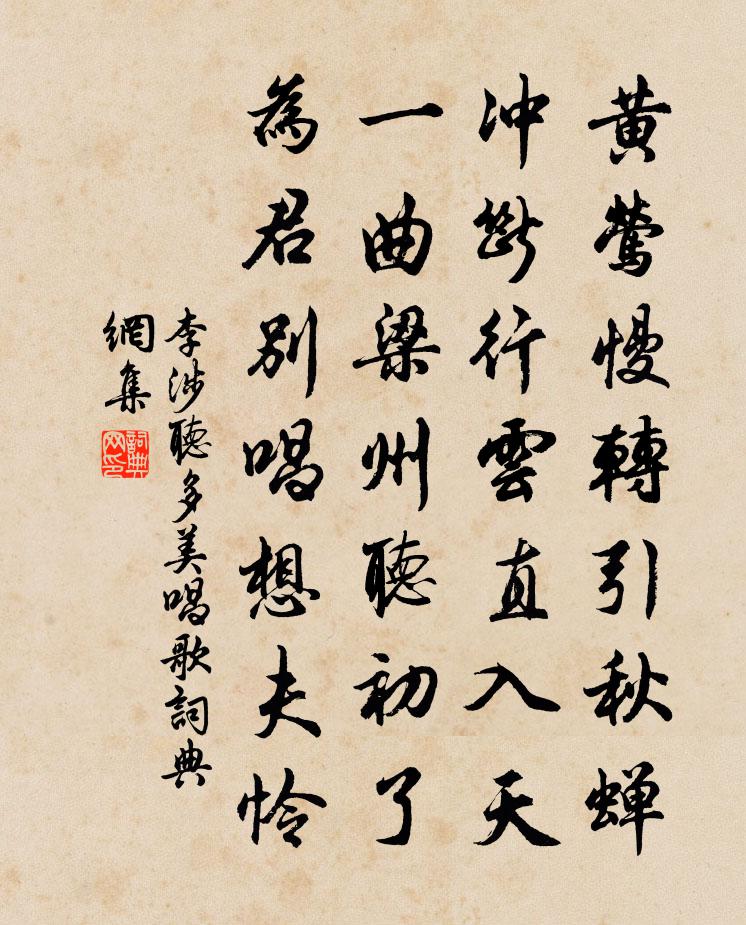 黃鶯慢轉引秋蟬
冲斷行雲直入天
一曲梁州聽初了
為君別唱想夫怜
李涉聽多美唱歌詞典
網集
詞典
网印